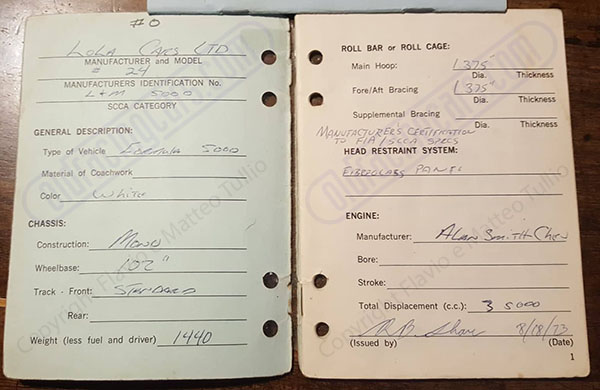 #0
LOLA CARS LTD
MANUFACTURER and MODEL
# 24
MANUFACTURERS IDENTIFICATION No.
L&M 5000
SCCA CATEGORY
GENERAL DESCRIPTION:
Type of Vehicle FORMULA 5000
Material of Coachwork
Color WHITE
CHASSIS:
Construction: MONO
Wheelbase: 102"
Track - Front: STANDARD
Rear:
Weight (less fuel and driver) 1440
ROLL BAR or ROLL CAGE:
Main Hoop: 1.375"
Dia. Thickness
Fore/Aft Bracing 1.375"
Dia. Thickness
Supplemental Bracing
Dia. Thickness
MANUFACTURERS CERTIFICATION
TO FIA/SCCA SPECS
HEAD RESTRAINT SYSTEM:
FIBERGLASS PANEL
ENGINE:
Manufacturer: ALAN SMITH CHEV
Bore:
Stroke:
Total Displacement (c.c.): 5000
R.B. 8/18/73
(Issued by) (Date)
1
Copyright Flavio e Matteo Tullio
Copyright Flavio e Matteo Tullio